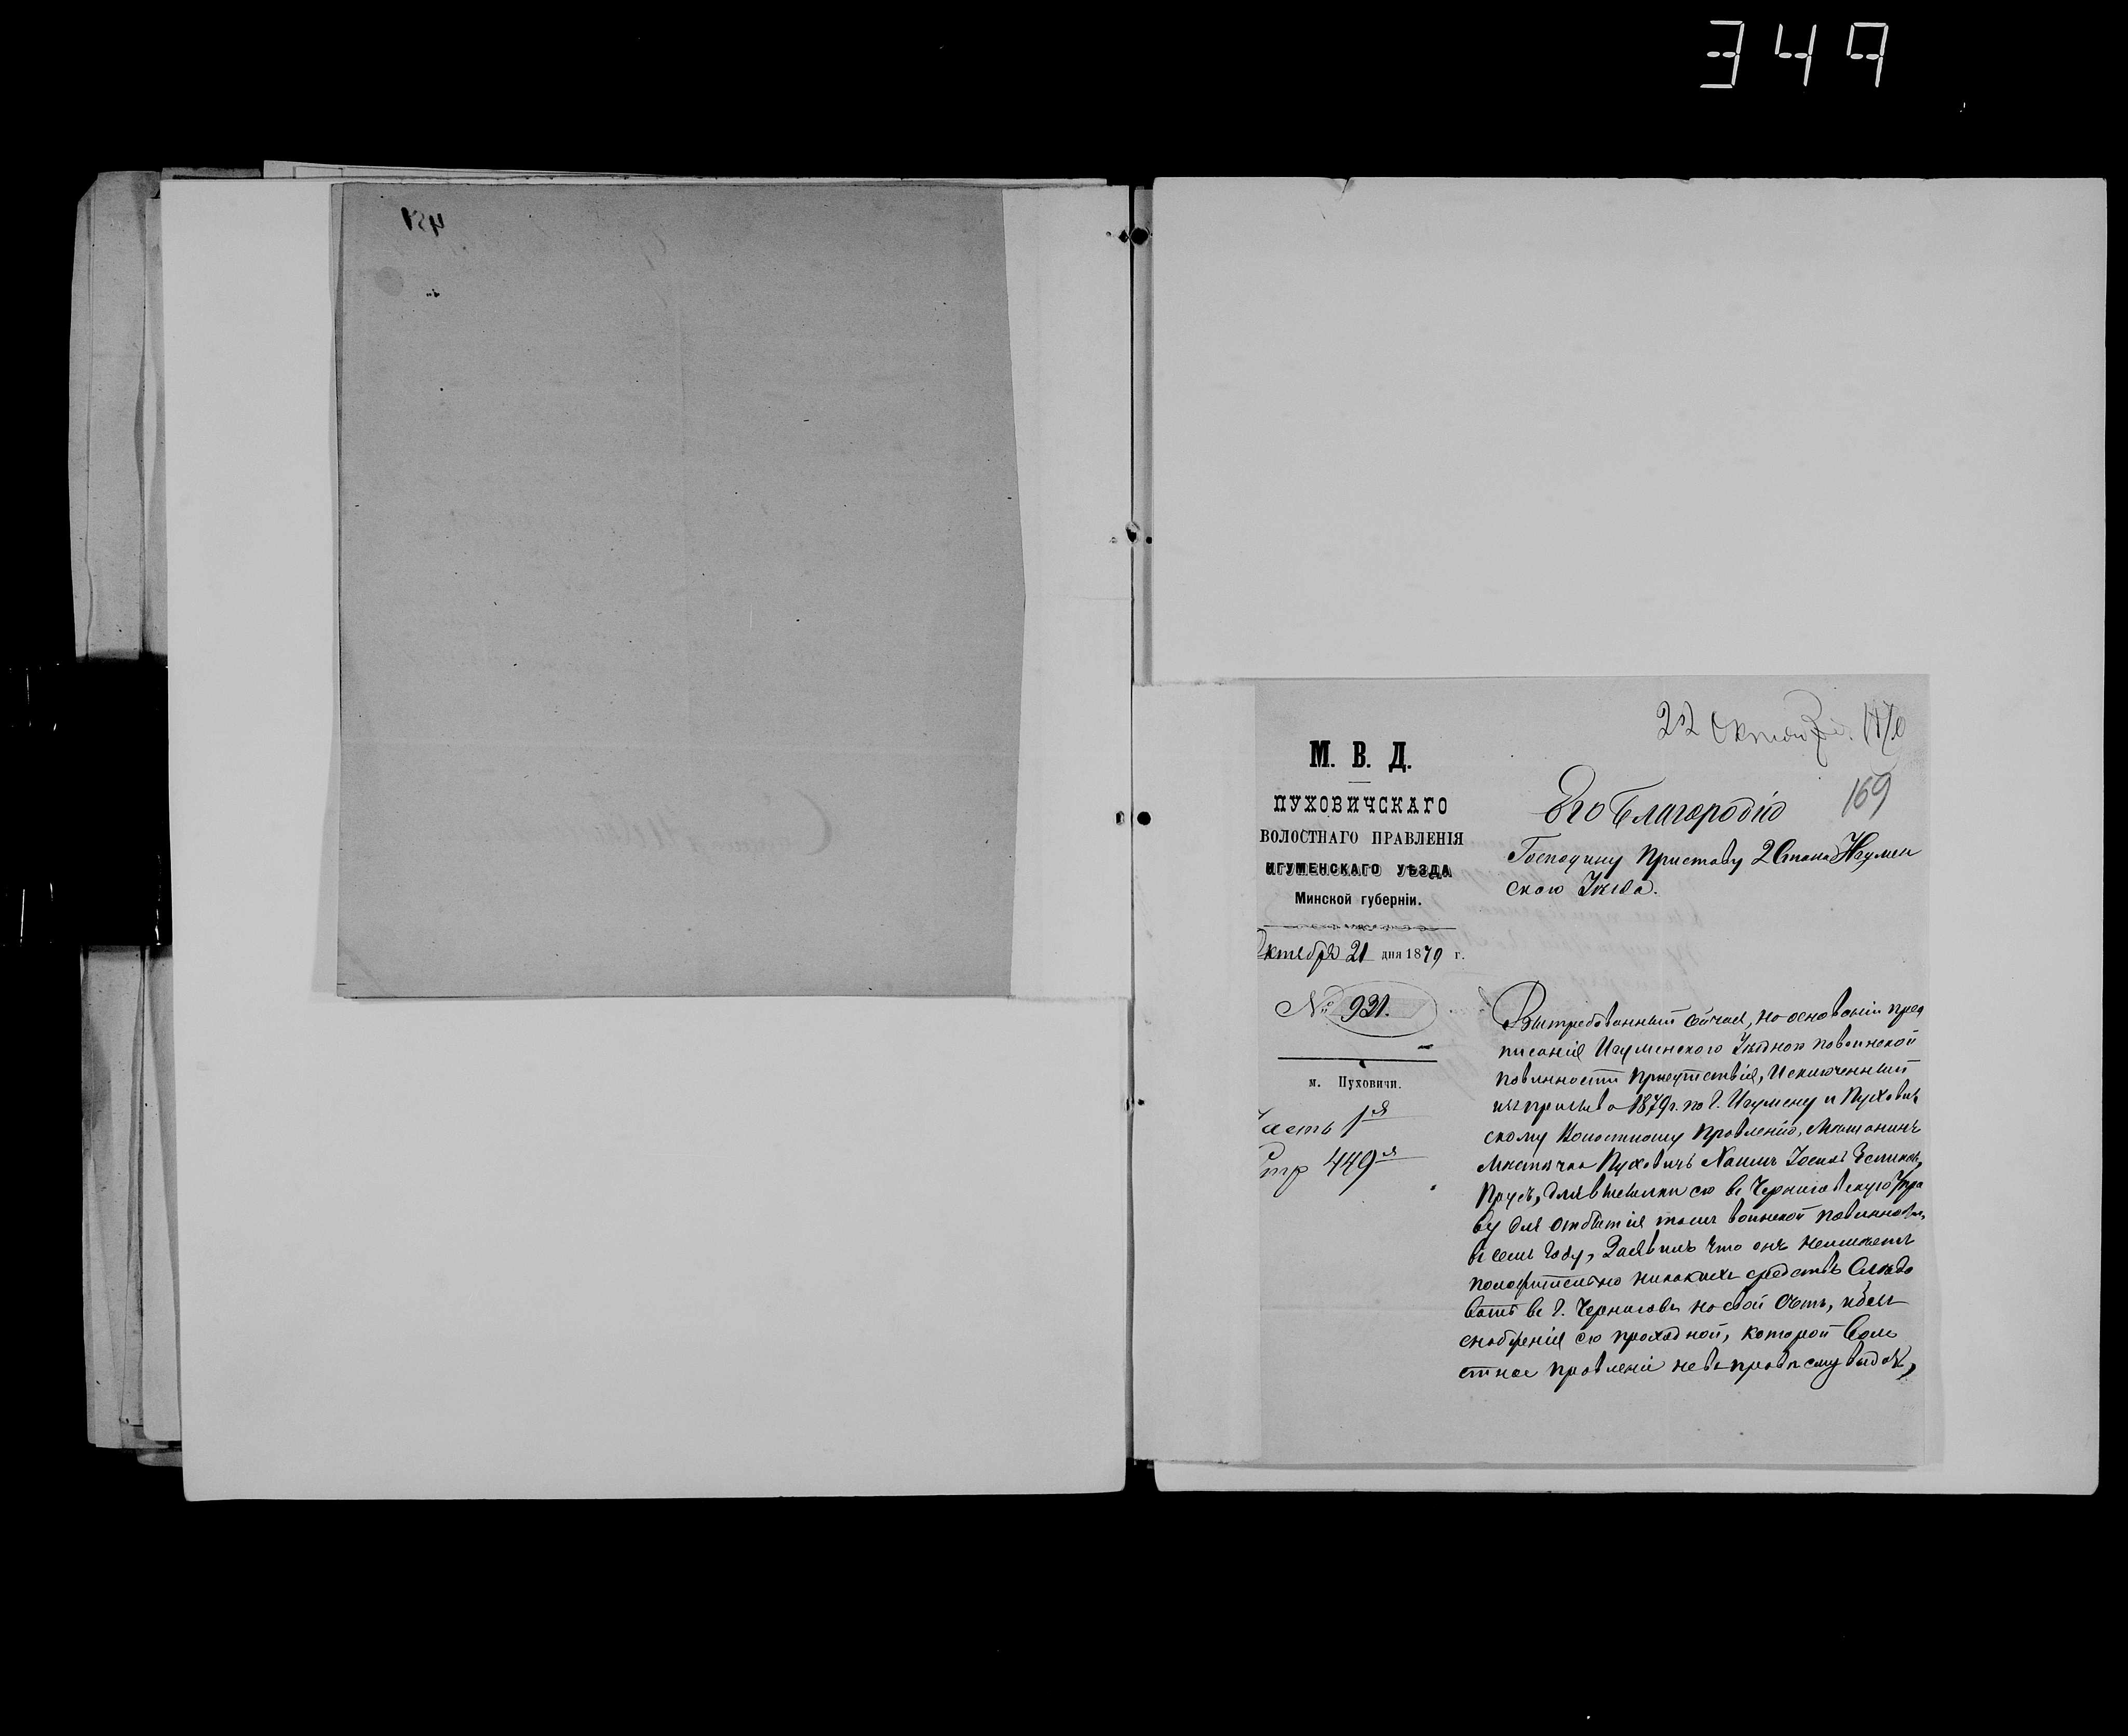 349
22 Октября
169
М. В. Д.
ПУХОВИЧСКАГО
ВОЛОСТНАГО ПРАВЛЕНІЯ
ИГУМЕНСКАГО УѢЗДА
Минской губерніи.
Октября 21 дня 1879 г.
№ 931.
м. Пуховичи.
Часть 1я
Стр 449я
Его Благородію
Господину Приставу 2 Стана Игумен
скаго Уѣзда.
Вытребованный сейчасъ, на основаніи пред
писанія Игуменскаго Уѣзднаго по воинской
повинности Присутствія, Исключенный
изъ призыва 1879 г. по г. Игумену и Пухович
скому Волостному Правленію, Мѣщанинъ
Мѣстечка Пуховичъ Хаимъ Іосель
Прусъ, для высылки его въ Черниговскую Упра
ву для отбытія тамъ воинской повинности,
въ семъ году, Заявилъ что онъ неимѣетъ
положительно никакихъ средствъ Слѣдо
вать въ г. Черниговъ на свой счетъ, безъ
снабженія его проходной, которой Воло
стное правленіе не въ правѣ ему выдать,